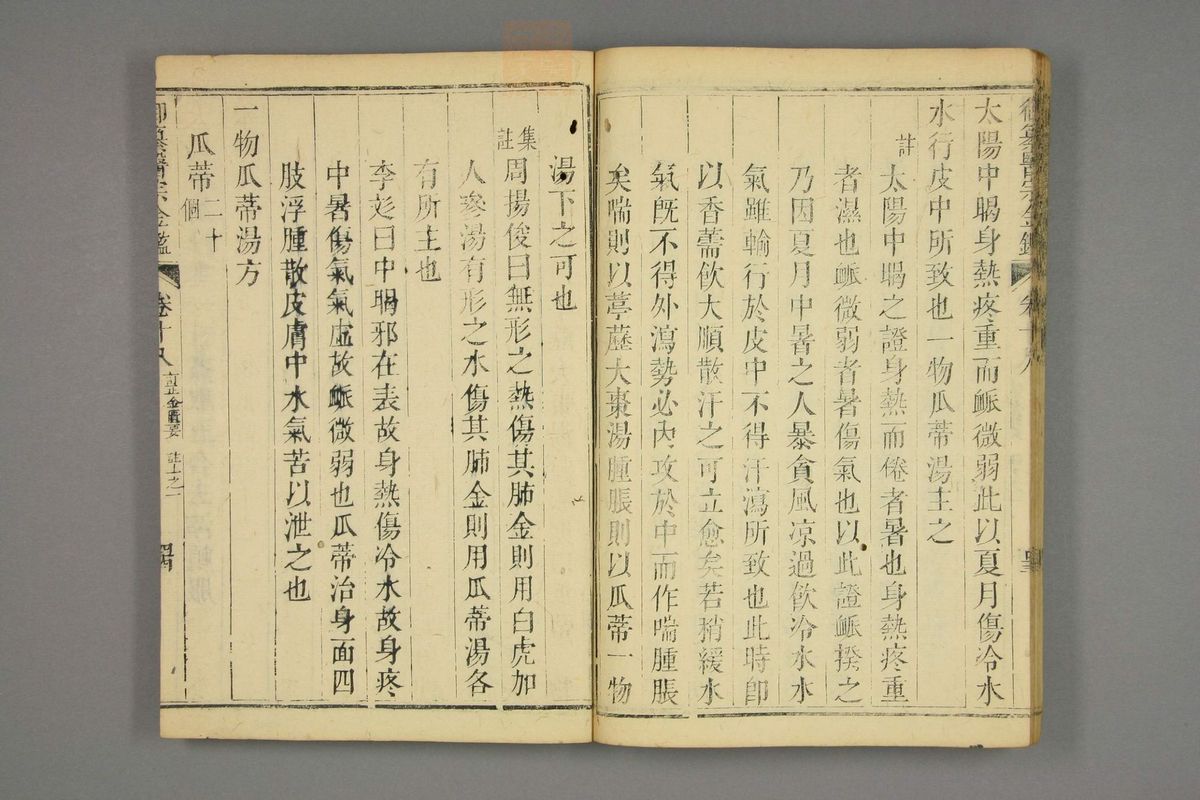 太陽中暍身熱疼重而脈微弱此以夏月傷冷水
水行皮中所致也一物瓜蒂湯主之
註
太陽中暍之證身熱而倦者暑也身熱疼重
者濕也脈微弱者暑傷氣也以此證脈揆之
乃因夏月中暑之人暴貪風凉過飲冷水水
氣雖輸行於皮中不得汗瀉所致也此時卽
以香薷飲大順散汗之可立愈矣若稍緩水
氣旣不得外瀉勢必內攻於中而作喘腫脹
矣喘則以葶藶大棗湯腫脹則以瓜蒂一物
湯下之可也
集註
周揚俊曰無形之熱傷其肺金則用白虎加
人參湯有形之水傷其肺金則用瓜蒂湯各
有所主也
李彣曰中暍邪在表故身熱傷冷水故身疼
中暑傷氣氣虛故脈微弱也瓜蒂治身面四
肢浮腫散皮膚中水氣苦以泄之也
一物瓜蒂湯方
瓜蒂二十個
御纂醫宗金鑑 卷十八 訂正金匱要 註十之一